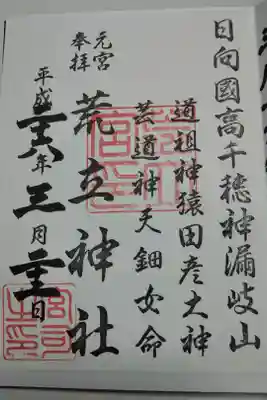 日向國高千穂神漏岐山
道祖神猿田彦大神
芸道神天鈿女命
元宮
奉拝
荒立神社
平成二十六年三月日
宮司之印